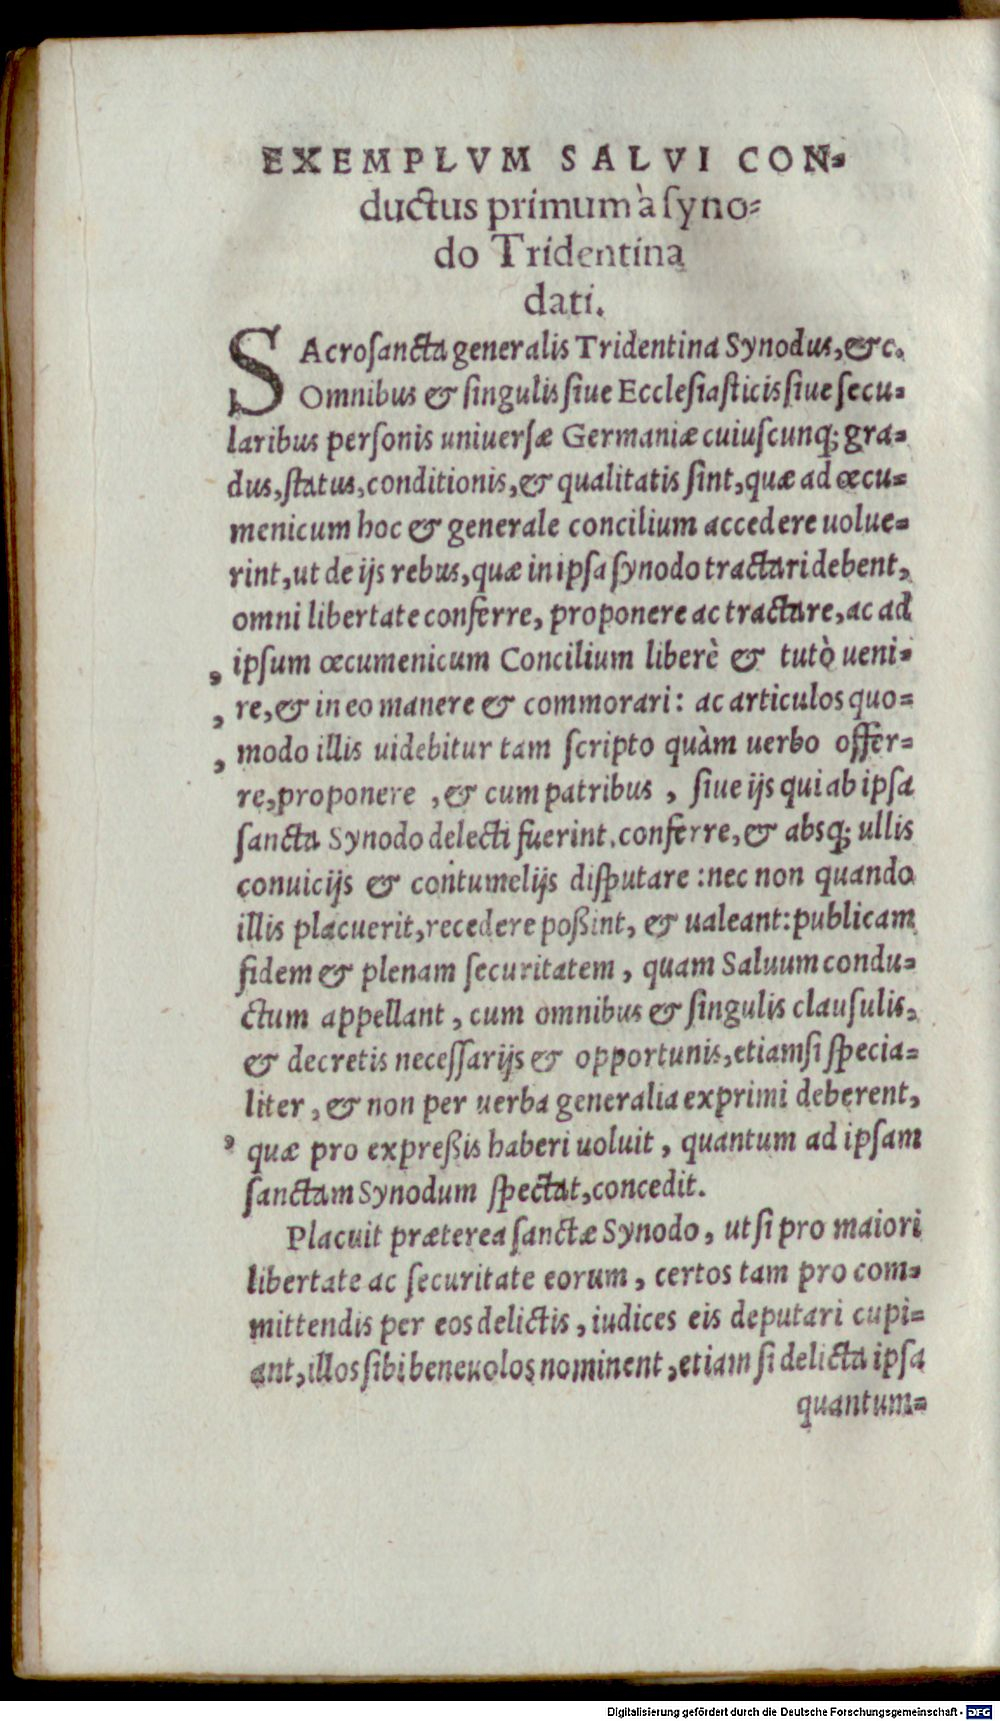 EXEMPLVM SALVI CON-
ductus primum à ſyno-
do Tridentina
dati.
SAcroſancta generalis Tridentina Synodus, &c.
Omnibus & ſingulis ſiue Eccleſiaſticis ſiue ſecu-
laribus perſonis uniuerſæ Germaniæ cuiuſcunq; gra-
dus, ſtatus, conditionis, & qualitatis ſint, quæ ad œcu-
menicum hoc & generale concilium accedere uolue-
rint, ut de ijs rebus, quæ in ipſa ſynodo tractari debent,
omni libertate conferre, proponere ac tractare, ac ad
, ipſum œcumenicum Concilium liberè & tutò ueni-
, re, & in eo manere & commorari: ac articulos quo-
, modo illis uidebitur tam ſcripto quàm uerbo offer-
re, proponere, & cum patribus, ſiue ijs qui ab ipſa
ſancta Synodo delecti fuerint. conferre, & absq; ullis
conuicijs & contumelijs diſputare: nec non quando
illis placuerit, recedere poßint, & ualeant: publicam
fidem & plenam ſecuritatem, quam Saluum condu-
ctum appellant, cum omnibus & ſingulis clauſulis,
& decretis neceſſarijs & opportunis, etiamſi ſpecia-
liter, & non per uerba generalia exprimi deberent,
, quæ pro expreßis haberi uoluit, quantum ad ipſam
ſanctam Synodum ſpectat, concedit.
Placuit præterea ſanctæ Synodo, ut ſi pro maiori
libertate ac ſecuritate eorum, certos tam pro com-
mittendis per eos delictis, iudices eis deputari cupi-
ant, illos ſibi beneuolos nominent, etiam ſi delicta ipſa
quantum-
Digitalisierung gefördert durch die Deutsche Forschungsgemeinschaft - DFG